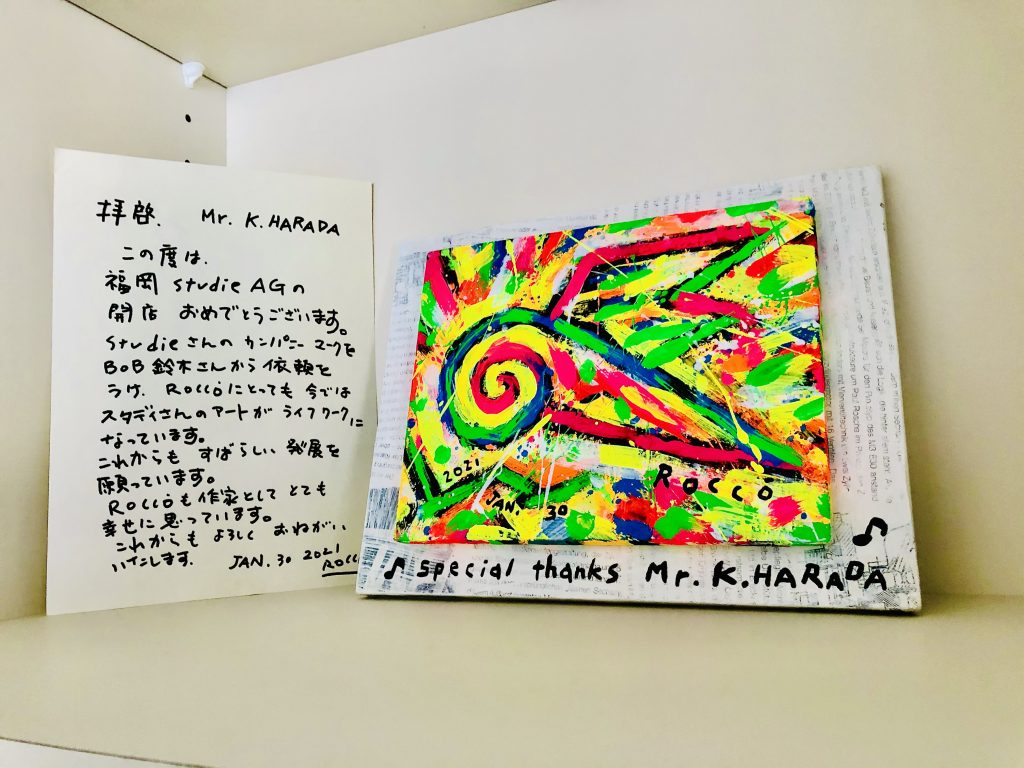 拝啓. Mr. K. HARADA
この度は.
福岡 studie AGの
開店 おめでとうございます。
studieさんの カンパニーマークを
BOB鈴木さんから依頼を
うけ. ROCCÒにとっても 今では
スタディさんのアートが ライフワークに
なっています。
これからも すばらしい 発展を
願っています。
ROCCÒも作家として とても
幸せに思っています。
これからも よろしく おねがい
いたします. JAN. 30 2021
ROCCÒ
2021
JAN. 30
ROCCÒ
♪ special thanks Mr. K. HARADA ♪